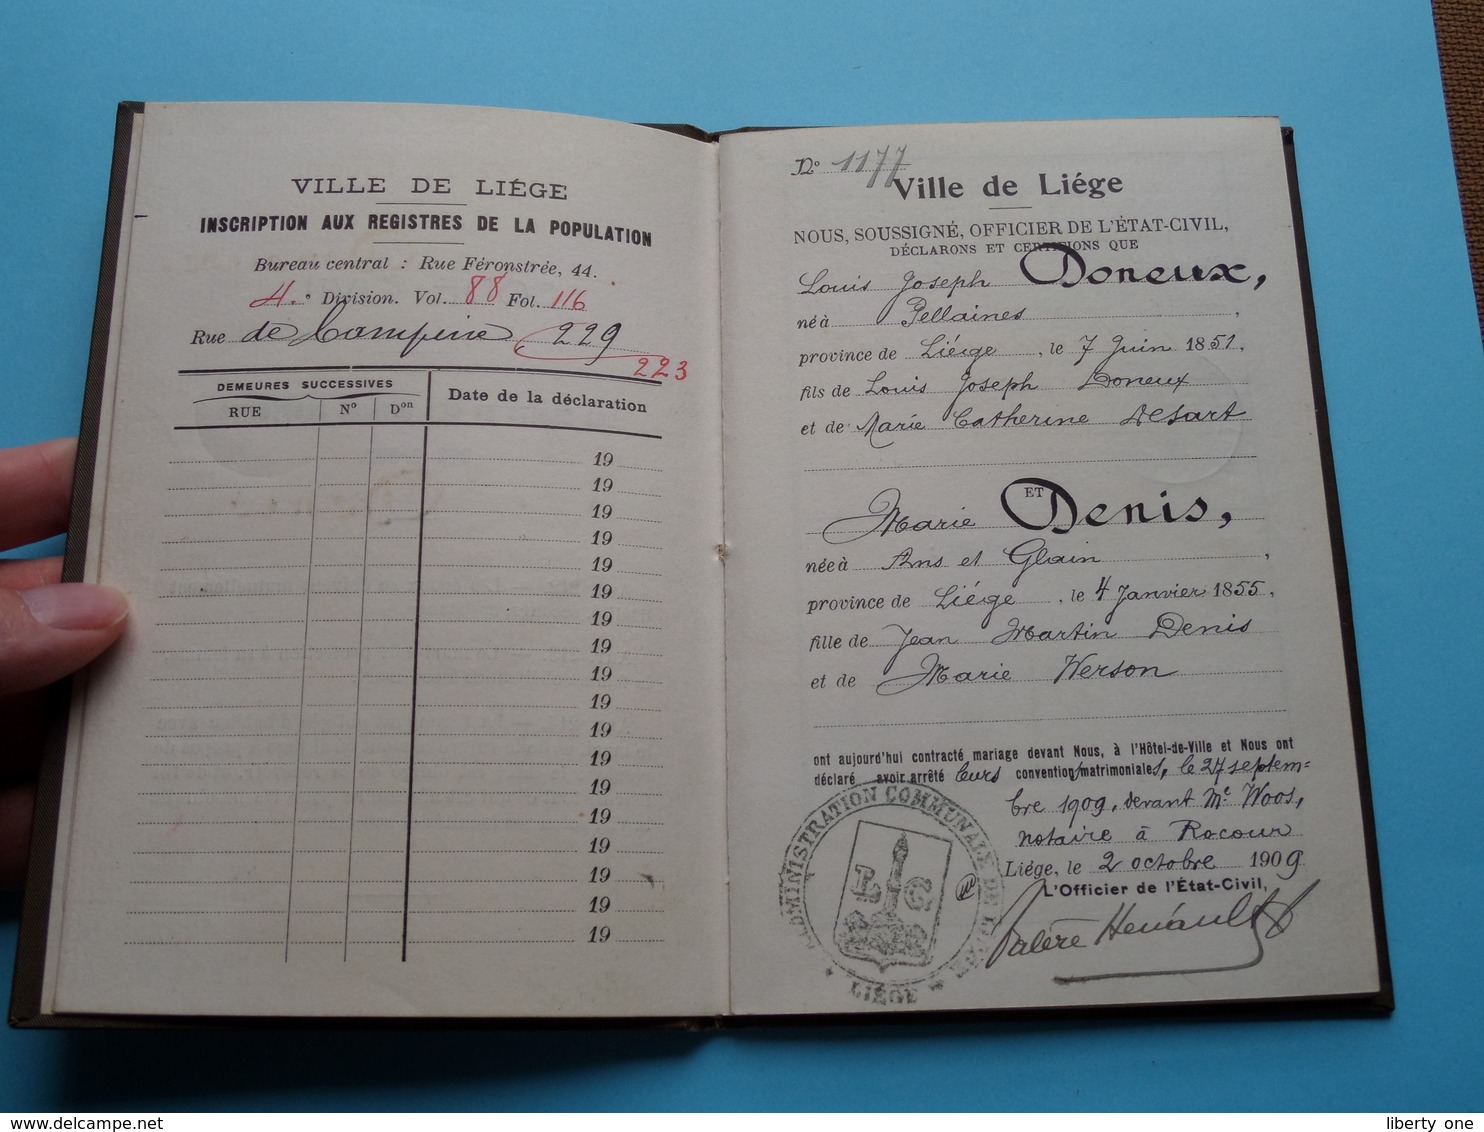 VILLE DE LIÉGE
INSCRIPTION AUX REGISTRES DE LA POPULATION
Bureau central : Rue Féronstrée, 44.
4.e Division. Vol. 88 Fol. 116
Rue de Campine 229
223
DEMEURES SUCCESSIVES
Date de la déclaration
RUE No Don
19
19
19
19
19
19
19
19
19
19
19
19
19
19
19
19
19
No 1177
Ville de Liége
NOUS, SOUSSIGNÉ, OFFICIER DE L'ÉTAT-CIVIL,
DÉCLARONS ET CERTIFIONS QUE
Louis Joseph Doneux,
né à Pellaines,
province de Liége, le 7 Juin 1851,
fils de Louis Joseph Doneux
et de Marie Catherine Delsart
ET
Marie Denis,
née à Ans et Glain,
province de Liége, le 4 Janvier 1855,
fille de Jean Martin Denis
et de Marie Werson
ont aujourd'hui contracté mariage devant Nous, à l'Hôtel-de-Ville et Nous ont
déclaré avoir arrêté leurs conventions matrimoniales, le 27 septem=
bre 1909, devant Me Woos,
notaire à Rocour
Liége, le 2 octobre 1909
L'Officier de l'État-Civil,
Valère Hénault
ADMINISTRATION COMMUNALE DE LIÉGE
L G
LIÉGE
liberty one